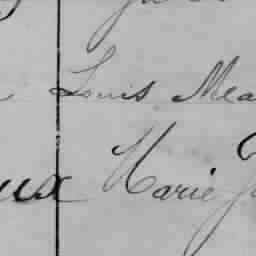 Louis Mea
ux Marie J